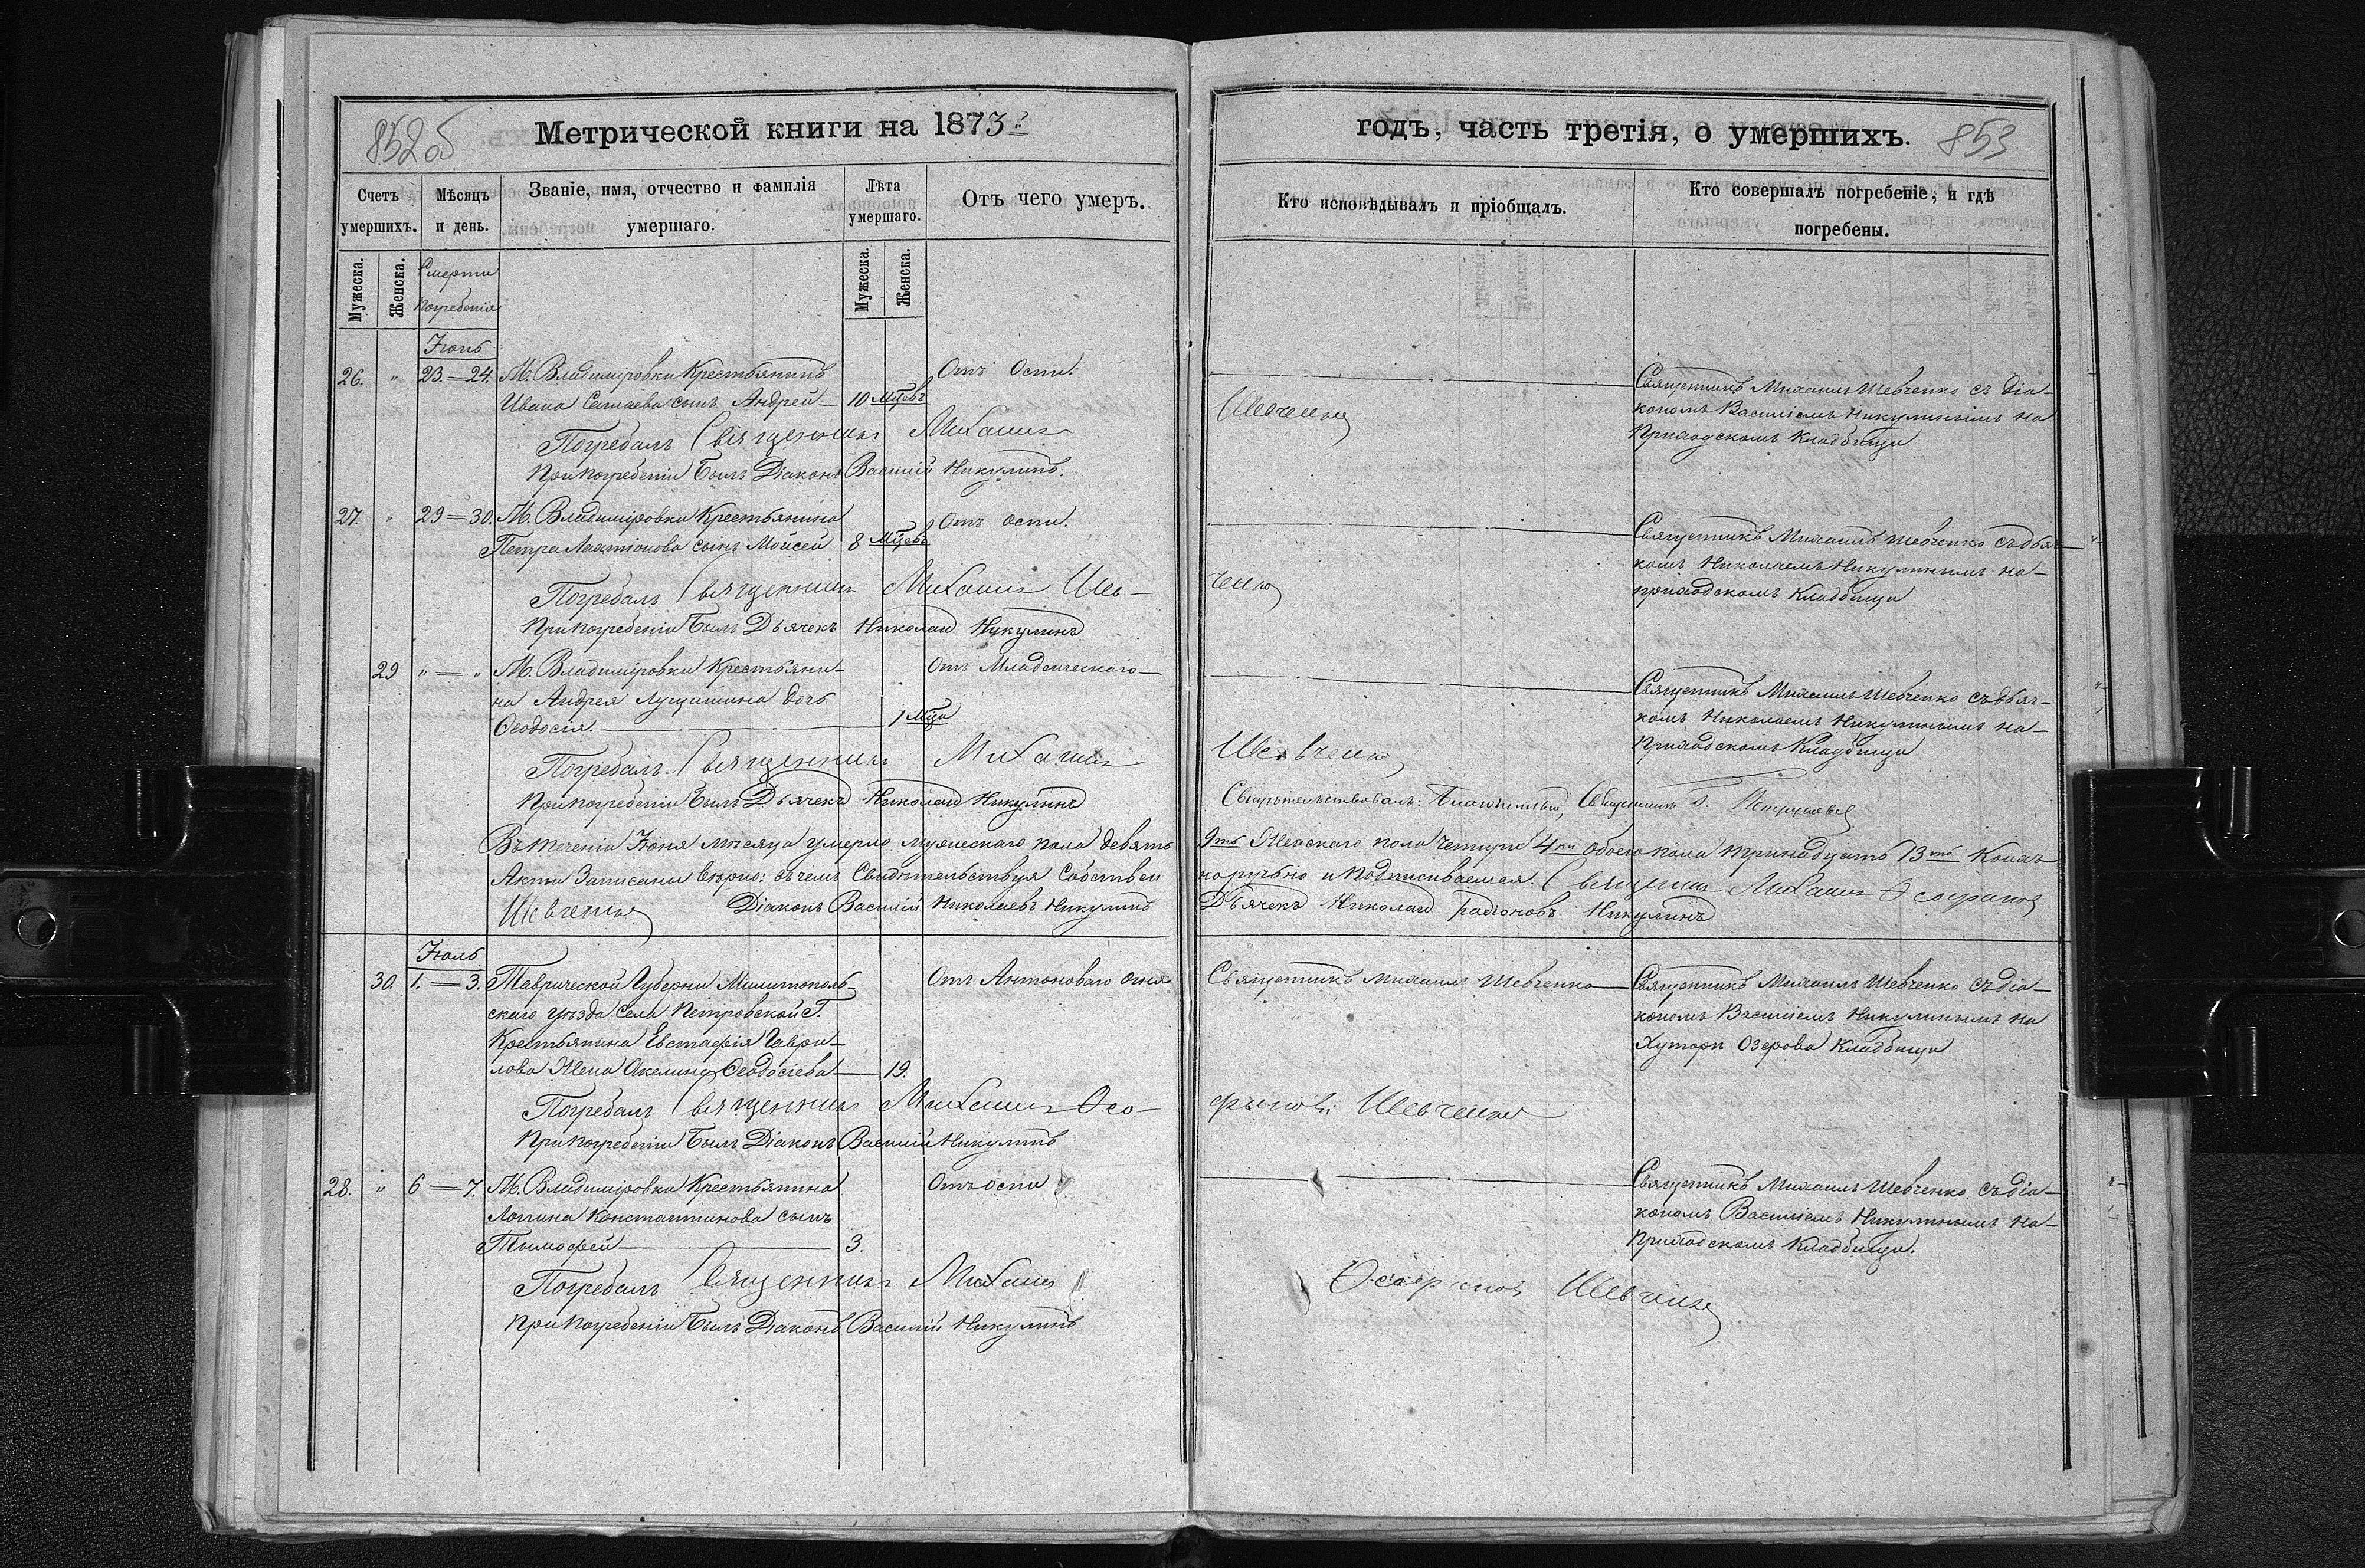 852об
Метрической книги на 1873й
Счетъ умершихъ.
Мѣсяцъ и день.
Званіе, имя, отчество и фамилія умершаго.
Лѣта умершаго.
Отъ чего умеръ.
Мужеска.
Женска.
Смерти
погребенія
Мужеска.
Женска.
Іюнь
26. " 23.=24. М. Владиміровки Крестьянинъ Отъ Оспи.
Ивана сынъ Андрей 10 Мцевъ
Погребалъ Священникъ Михаилъ
При погребеніи былъ Діаконъ Василій Никулинъ.
27. " 29=30. М. Владиміровки Крестьянина Отъ оспи.
Петра Лактіонова сынъ Мойсей 8 Мцевъ
Погребалъ Священникъ Михаилъ Шев-
При погребеніи былъ Дьячекъ Николай Никулинъ
29 " = " М. Владиміровки Крестьяни- Отъ Младенческаго
на Андрея дочь
Ѳеодосія. 1 Мца
Погребалъ Священникъ Михаилъ
При погребеніи былъ Дьячекъ Николай Никулинъ
Въ теченіи Іюня мѣсяца умерло мужескаго пола девять
Акты Записаны вѣрно: въ чемъ Свидѣтельствуя Собствен
Шевченко Діаконъ Василій Николаевъ Никулинъ
Іюль
30. 1.=3. Таврической Губерніи Милитополь- Отъ Антоноваго огня
скаго уѣзда Села Петровской Г.
Крестьянина Евстафія Гаври-
лова Жена Акелина Ѳеодосіева 19.
Погребалъ Священникъ Михаилъ Ѳео-
При погребеніи былъ Діаконъ Василій Никулинъ
28. " 6=7. М. Владиміровки Крестьянина Отъ оспи
Логина Константинова сынъ
Тимофей 3.
Погребалъ Священникъ Михаилъ
При погребеніи былъ Діаконъ Василій Никулинъ
годъ, часть третія, о умершихъ. 853
Кто исповѣдывалъ и пріобщалъ.
Кто совершалъ погребеніе; и гдѣ погребены.
Священникъ Михаилъ Шевченко съ діа-
кономъ Василіемъ Никулинымъ на
Приходскомъ Кладбищи
Шевченко
Священникъ Михаилъ Шевченко съ дья-
комъ Николаемъ Никулинымъ на
приходскомъ Кладбищи
ченко
Священникъ Михаилъ Шевченко съ дьяч-
комъ Николаемъ Никулинымъ на
Приходскомъ Кладбищи
Шевченко
Свидѣтельствовалъ: Благочинный, Священникъ
9ть Женскаго пола Четыре 4ри обоего пола тринадцать 13ть Коихъ
норучьно и подписываемся. Священникъ Михаилъ Ѳеофановъ
Дьячекъ Николай Радіоновъ Никулинъ
Священникъ Михаилъ Шевченко Священникъ Михаилъ Шевченко съ діа-
кономъ Василіемъ Никулинымъ на
Хуторѣ Озерова Кладбищи
фановъ Шевченко
Священникъ Михаилъ Шевченко съ діа-
кономъ Василіемъ Никулинымъ на
Приходскомъ Кладбищи.
Ѳеофановъ Шевченко